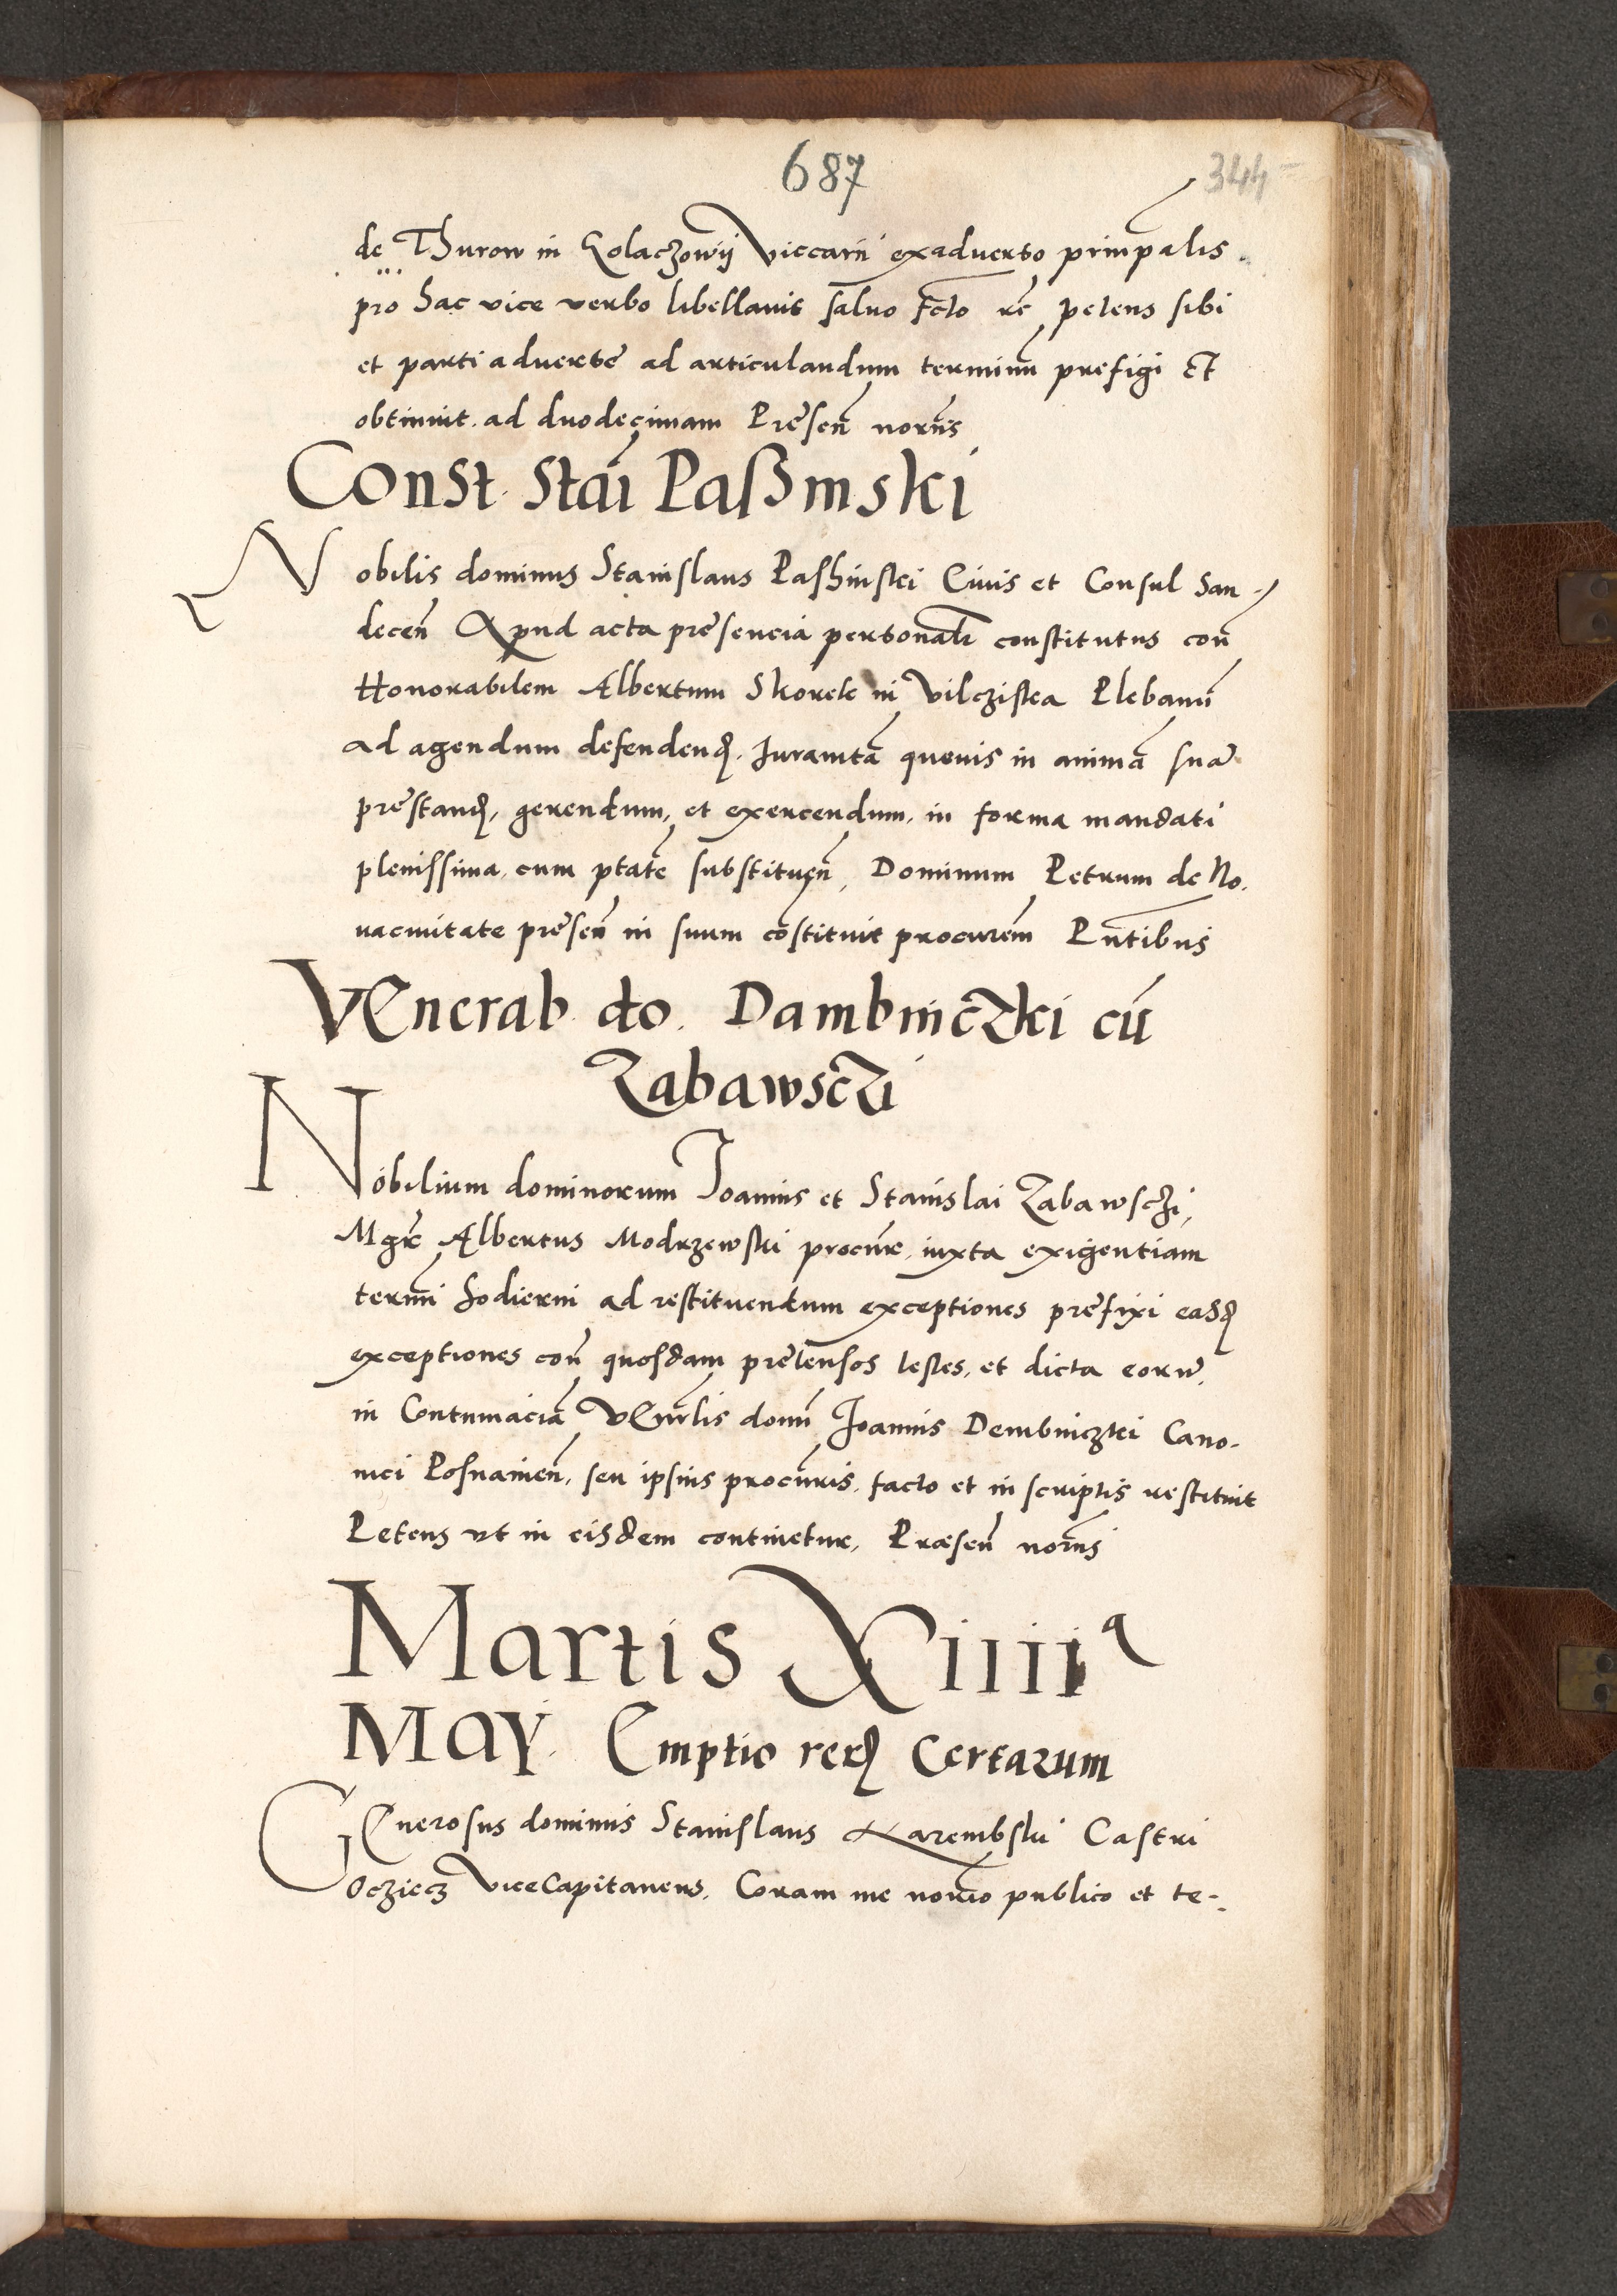 687
344
de Thurow in Golaczowij Viccarii exadverso prinpalis
pro hac vice verbo libellavit salvo fcto re petens sibi
et parti adverse ad articulandum terminū prefigi Et
obtinuit. ad duodecimam Presen̄ norīis
Const. Stai Paßinski
Nobilis dominus Stanislaus Pashinski Civis et Consul San-
decen̄ Apud acta presencia personalr constitutus con̄
Honorabilem Albertum Skorek in Vilcziska Plebanū
ad agendum defendend. Juramtā quevis in animā suā
prestand, gerendum, et exercendum, in forma mandati
plenissima, cum ptate substituen̄, Dominum Petrum de No.
vacivitate presen̄ in suum cōstituit procurem Pn̄tibus
VEnerab. do. Dambniczki cū
Zabawsczi
Nobilium dominorum Joannis et Stanislai Zabawsczi,
Mgr Albertus Modrzewski procūr, iuxta exigentiam
termi hodierni ad restituendum exceptiones prefixi easd
exceptiones con̄ quosdam pretensos testes, et dicta eorū,
in Contumaciā VEnrlis domi Joannis Dembniczki Cano-
nici Posnanien̄, seu ipsius procuris, facto et in scriptis restituit
Petens ut in eisdem continetur, Præsen̄ norīis
Martis Xiiiia
MAY. Emptio rerum Certarum
GEnerosus dominus Stanislaus Karembski Castri
Ocziecz ViceCapitaneus, Coram me norio publico et te-